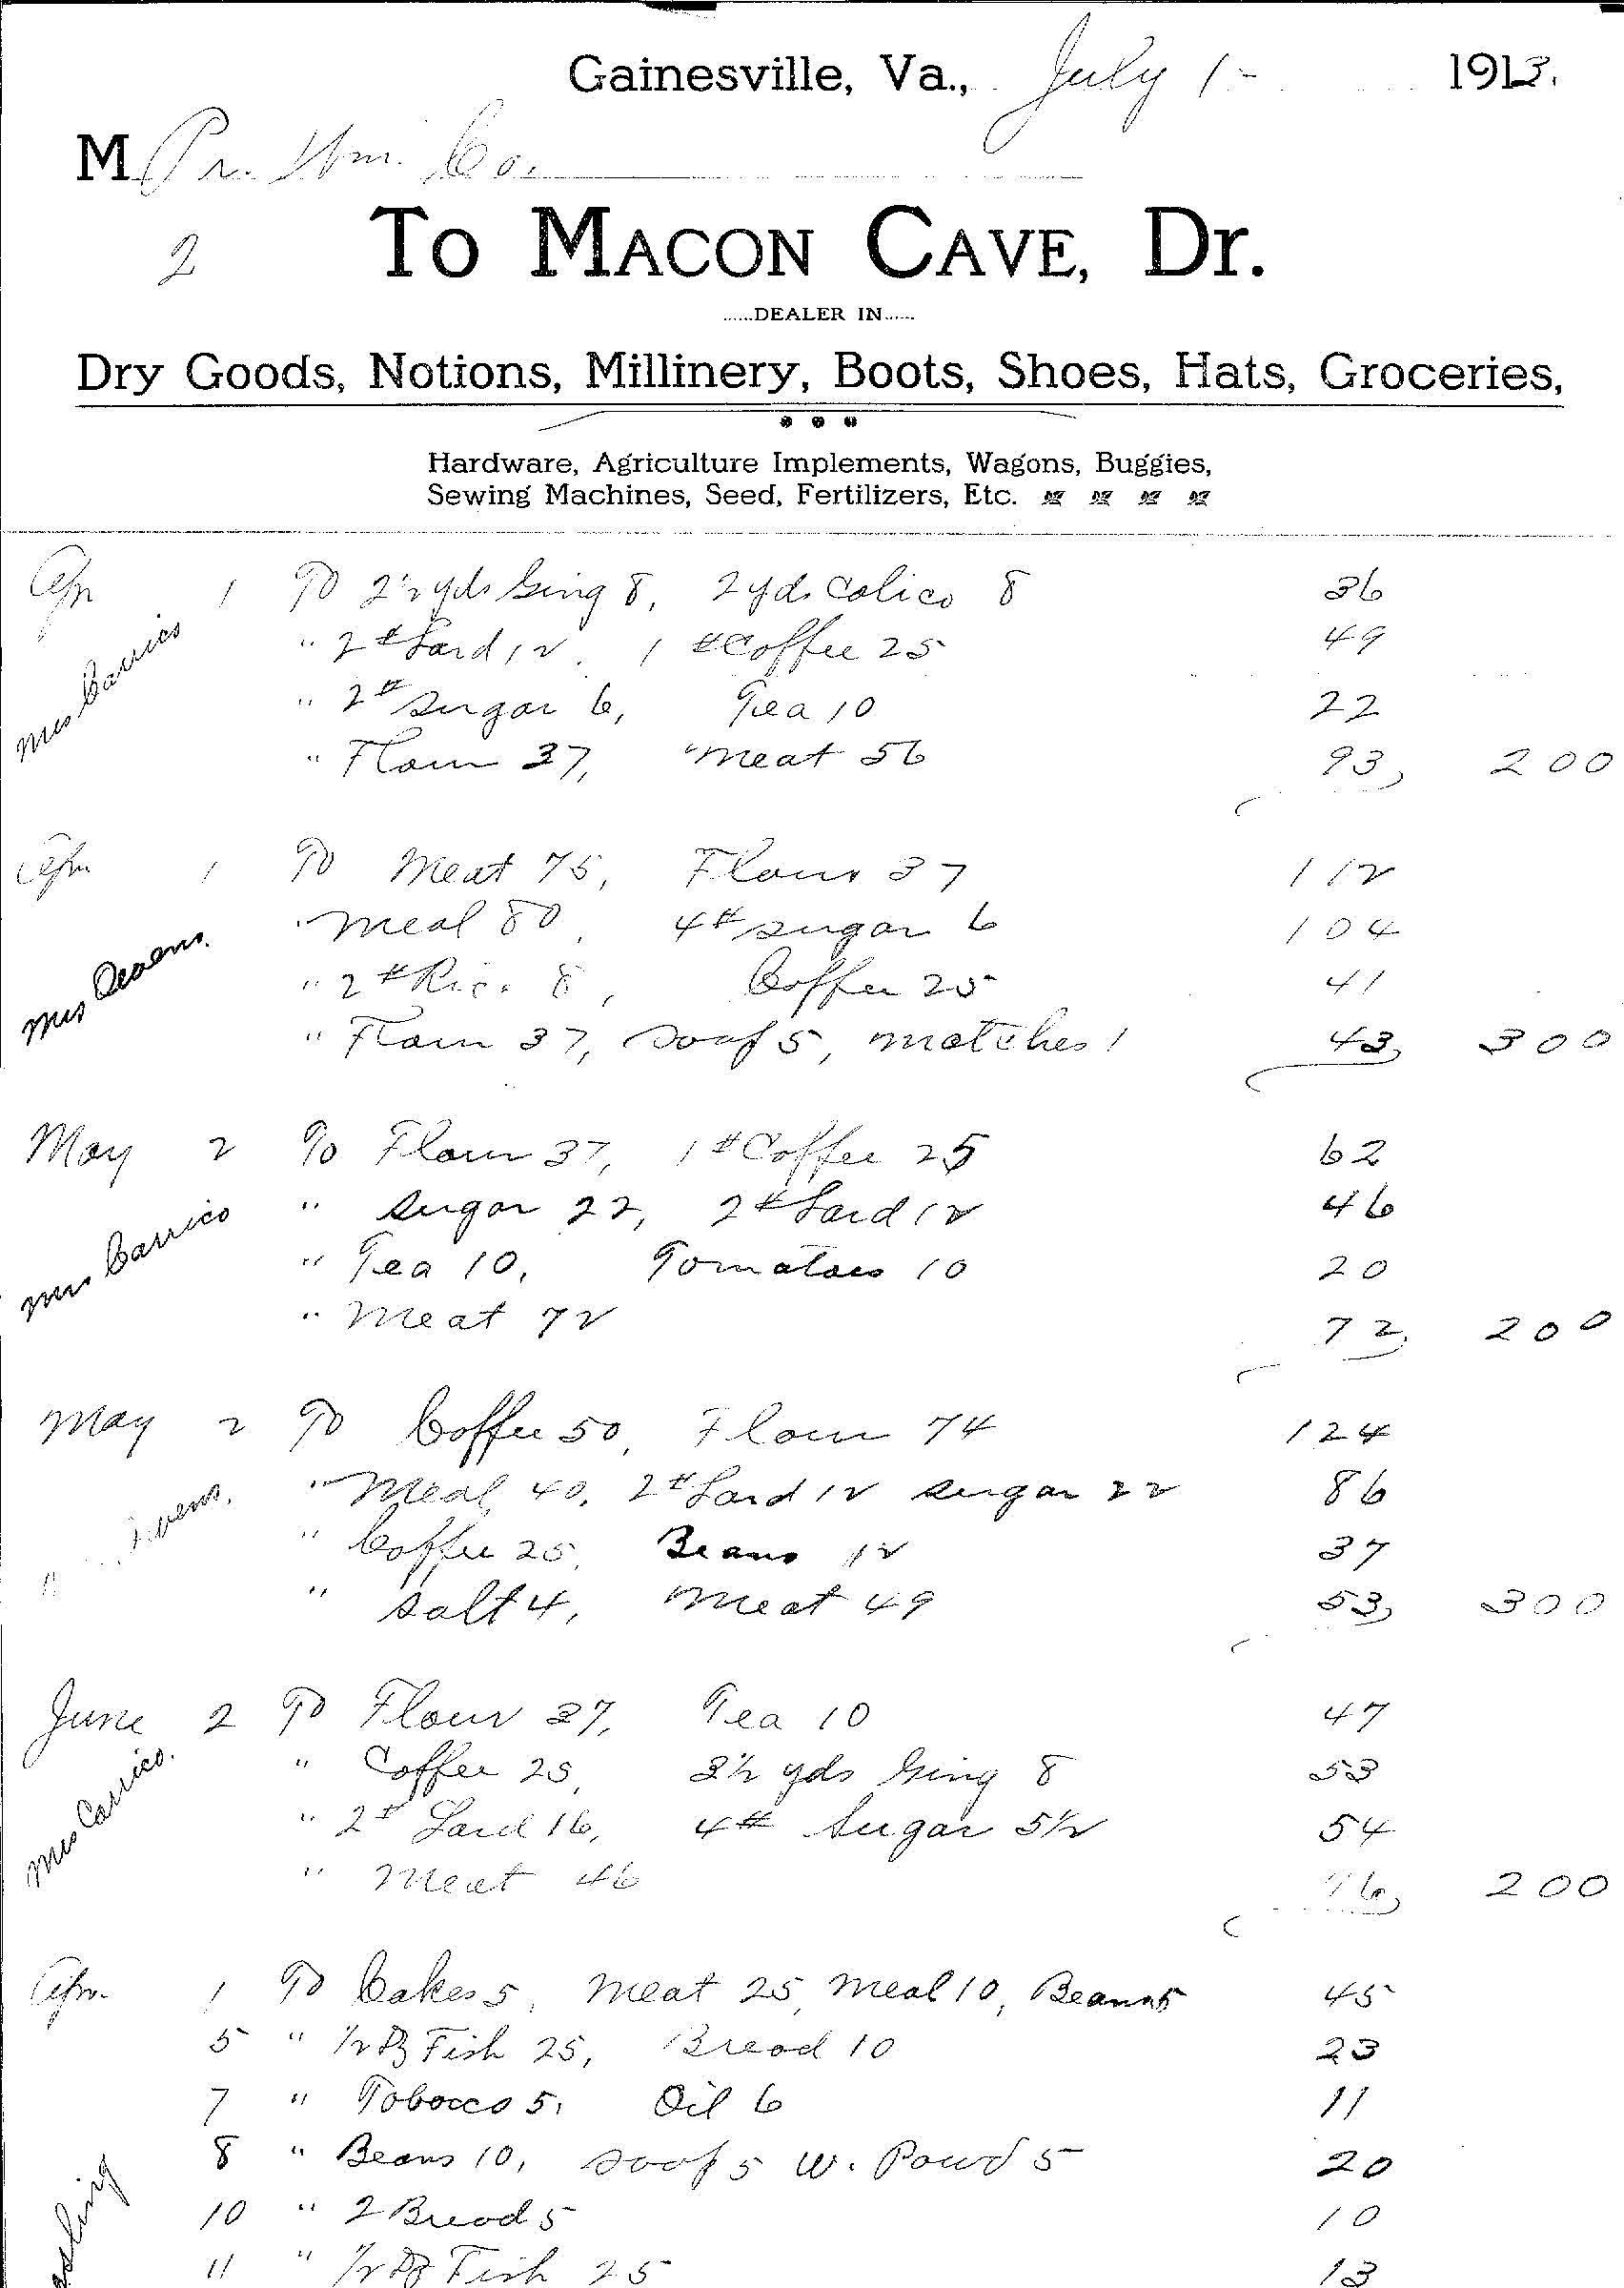 Gainesville, Va., July 1- 1913.
M Pr. Wm. Co.
2
To Macon Cave, Dr.
......DEALER IN......
Dry Goods, Notions, Millinery, Boots, Shoes, Hats, Groceries,
Hardware, Agriculture Implements, Wagons, Buggies,
Sewing Machines, Seed, Fertilizers, Etc.
Apr 1 To 2½ yds Ging 8, 2 yds Calico 8 36
" 2# Lard 12. 1 # Coffee 25 49
Mrs Carrico
" 2# Sugar 6, Tea 10 22
" Flour 37, "Meat 56 93, 200
Apr. 1 To Meat 75, Flour 37 112
" Meal 80, 4# Sugar 6 104
Mrs Owens.
" 2# Rice 8, Coffee 25 41
" Flour 37, Soap 5, Matches 1 43, 300
May 2 To Flour 37, 1# Coffee 25 62
" Sugar 22, 2# Lard 12 46
Mrs Carrico
" Tea 10, Tomatoes 10 20
" Meat 72 72, 200
May 2 To Coffee 50, Flour 74 124
" Meal 40, 2# Lard 12 Sugar 22 86
" Coffee 25, Beans 12 37
" Salt 4, Meat 49 53, 300
June 2 To Flour 37, Tea 10 47
" Coffee 25, 3½ yds Ging 8 53
Mrs Carrico.
" 2# Lard 16, 4# Sugar 5½ 54
" Meat 46 46, 200
Apr. 1 To Cakes 5, Meat 25, Meal 10, Beans 5 45
5 " ½ Dz Fish 25, Bread 10 23
7 " Tobacco 5, Oil 6 11
8 " Beans 10, Soap 5 W. Powd 5 20
10 " 2 Bread 5 10
11 " ½ Dz Fish 25 13